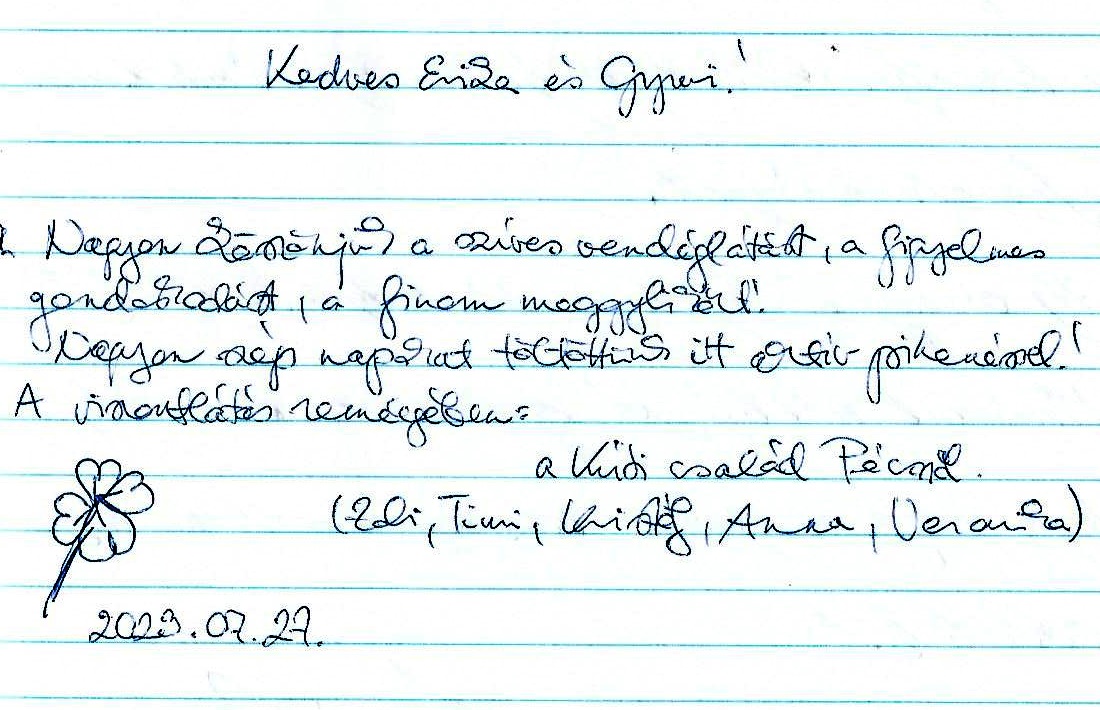 Kedves Erika és Gyuri!
Nagyon köszönjük a szíves vendéglátást, a figyelmes
gondoskodást, a finom meggylikőrt!
Nagyon szép napokat töltöttünk itt aktív pihenéssel!
A viszontlátás reményében:
a családi Pécsről.
(Edi, Timi, Kristóf, Anna, Veronika)
2023.07.27.